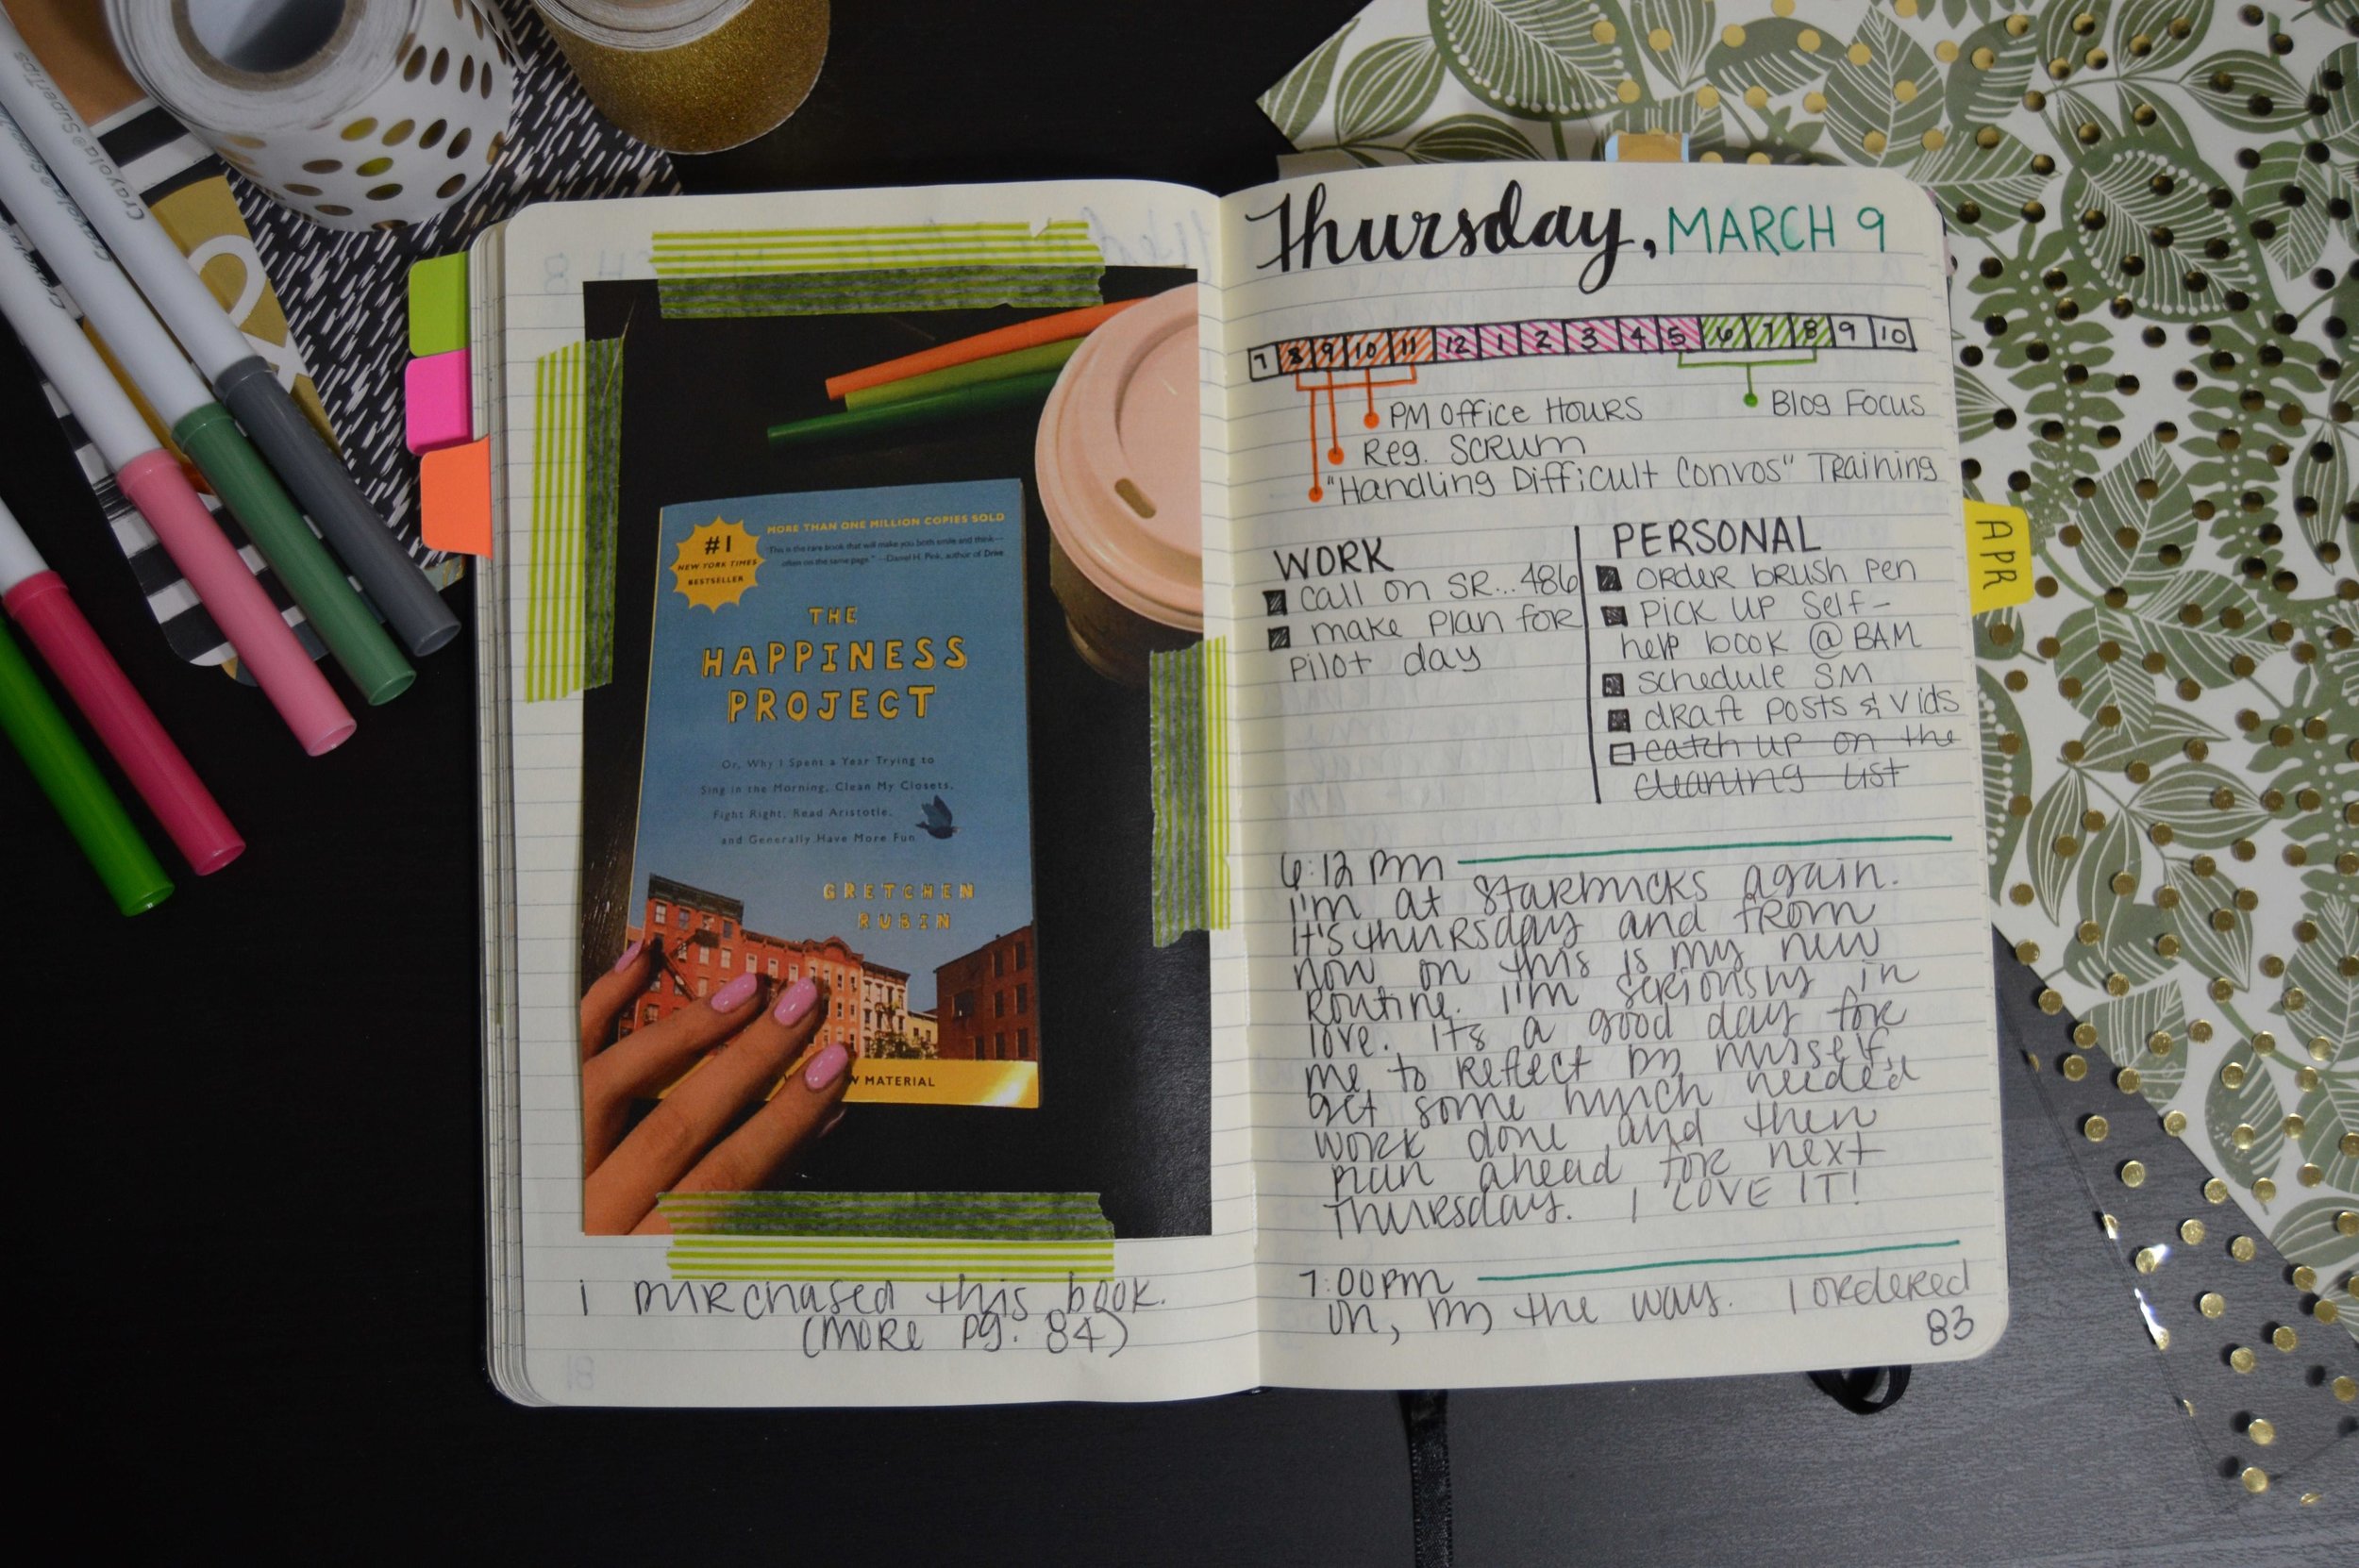 Crayola® SuperTips
Crayola® Super
Crayola
MORE THAN ONE MILLION COPIES SOLD
"This is the rare book that will make you both smile and think—
often on the same page." —Daniel H. Pink, author of Drive
#1
NEW YORK TIMES
BESTSELLER
THE
HAPPINESS
PROJECT
Or, Why I Spent a Year Trying to
Sing in the Morning, Clean My Closets,
Fight Right, Read Aristotle,
and Generally Have More Fun
GRETCHEN
RUBIN
W MATERIAL
I purchased this book.
(more pg. 84)
81
Thursday, MARCH 9
7 8 9 10 11 12 1 2 3 4 5 6 7 8 9 10
PM Office Hours
Blog Focus
Reg. Scrum
"Handling Difficult Convos" Training
WORK
call on SR...486
make plan for
pilot day
PERSONAL
order brush pen
pick up self-
help book @ BAM
schedule SM
draft posts & vids
catch up on the
cleaning list
6:12 pm
I'm at Starbucks again.
It's Thursday and from
now on this is my new
routine. I'm seriously in
love. Its a good day for
me to reflect by myself,
get some much needed
work done and then
plan ahead for next
Thursday. I LOVE IT!
7:00pm
Oh, by the way. I ordered
83
APR